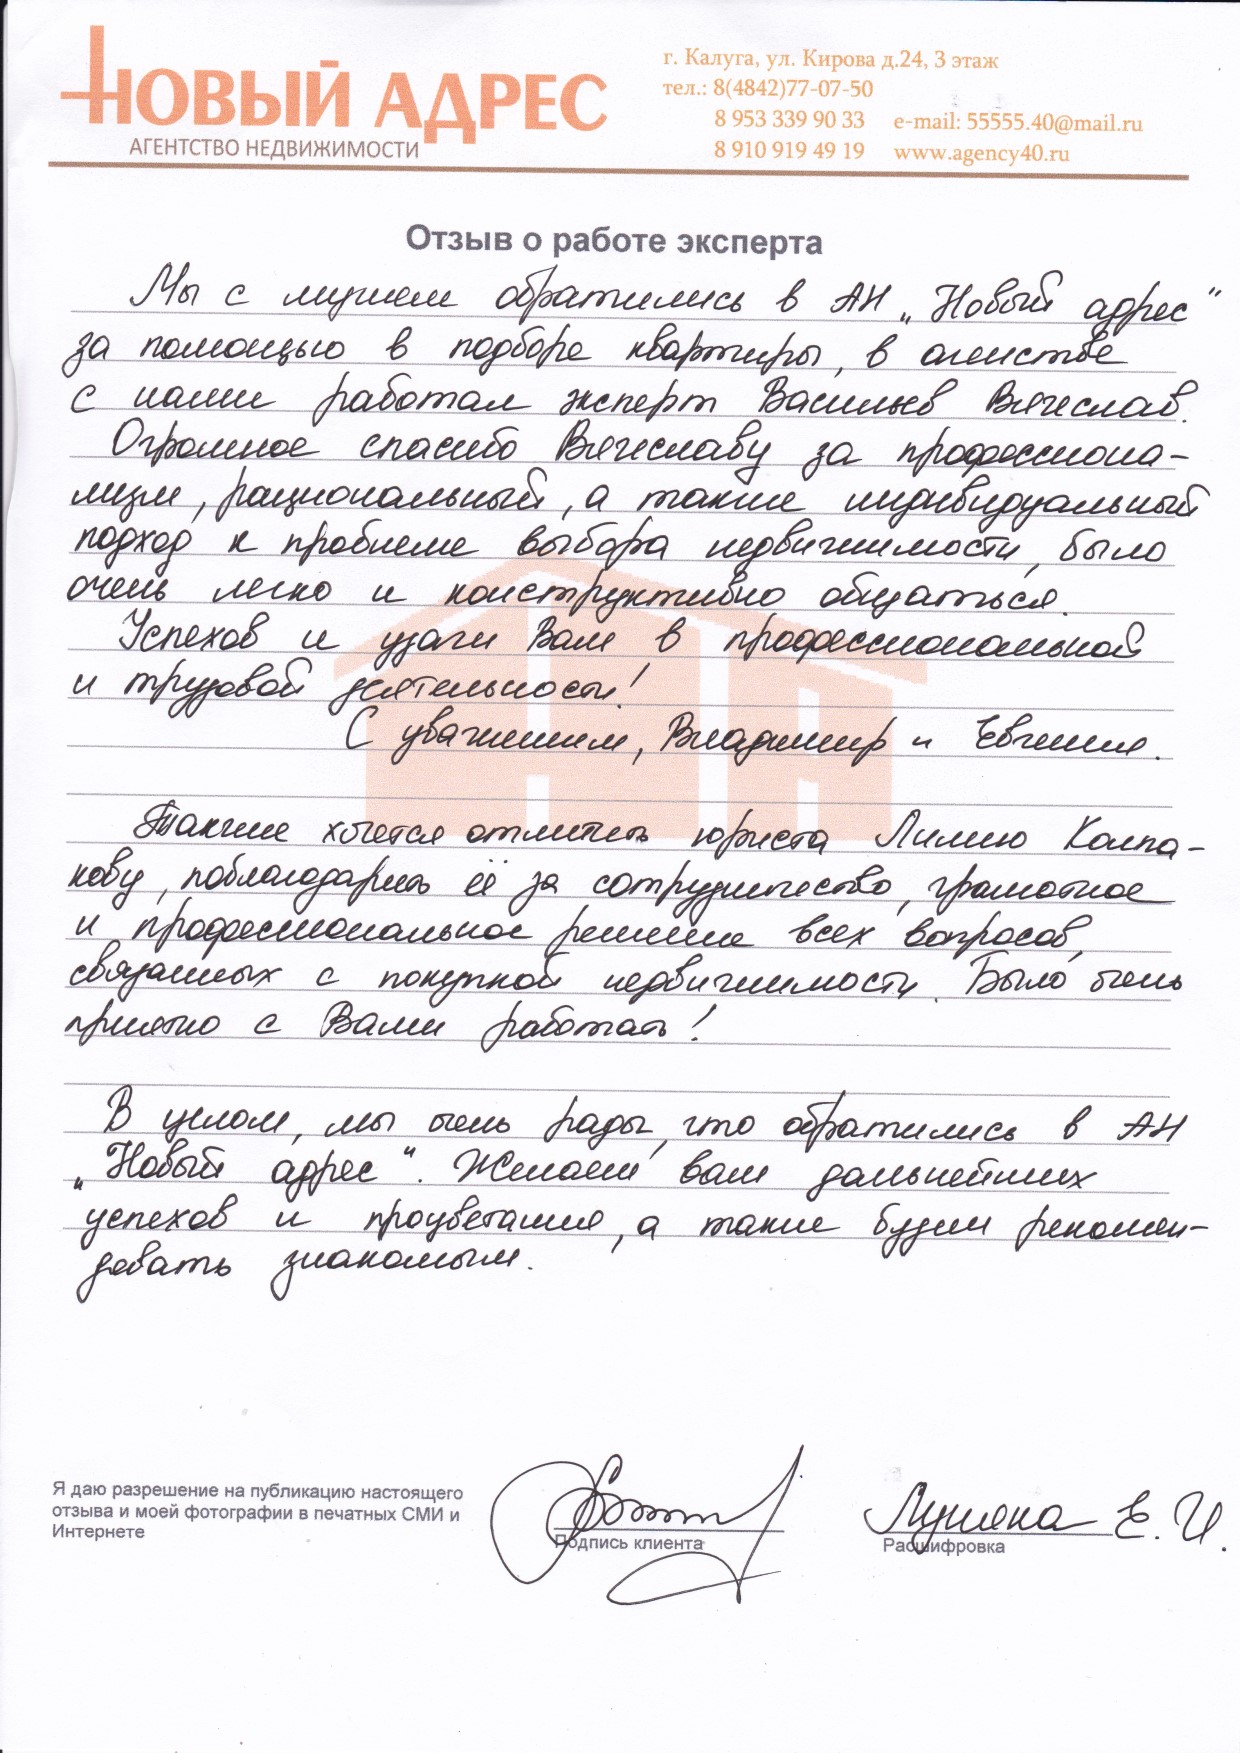 НОВЫЙ АДРЕС
АГЕНТСТВО НЕДВИЖИМОСТИ
г. Калуга, ул. Кирова д.24, 3 этаж
тел.: 8(4842)77-07-50
8 953 339 90 33 e-mail: 55555.40@mail.ru
8 910 919 49 19 www.agency40.ru
Отзыв о работе эксперта
Мы с мужем обратились в АН „Новый адрес"
за помощью в подборе квартиры, в агенстве
с нами работал эксперт Васильев Вячеслав.
Огромное спасибо Вячеславу за профессиона-
лизм, рациональный, а также индивидуальный
подход к проблеме выбора недвижимости, было
очень легко и конструктивно общаться.
Успехов и удачи Вам в профессиональной
и трудовой деятельности!
С уважением, Владимир и Евгения.
Также хочется отметить юриста Лилию Колпа-
кову, поблагодарить её за сотрудничество, грамотное
и профессиональное решение всех вопросов,
связанных с покупкой недвижимости. Было очень
приятно с Вами работать!
В целом, мы очень рады, что обратились в АН
„Новый адрес". Желаем вам дальнейших
успехов и процветания, а также будем рекомен-
довать знакомым.
Я даю разрешение на публикацию настоящего
отзыва и моей фотографии в печатных СМИ и
Интернете
Подпись клиента
Е.И.
Расшифровка